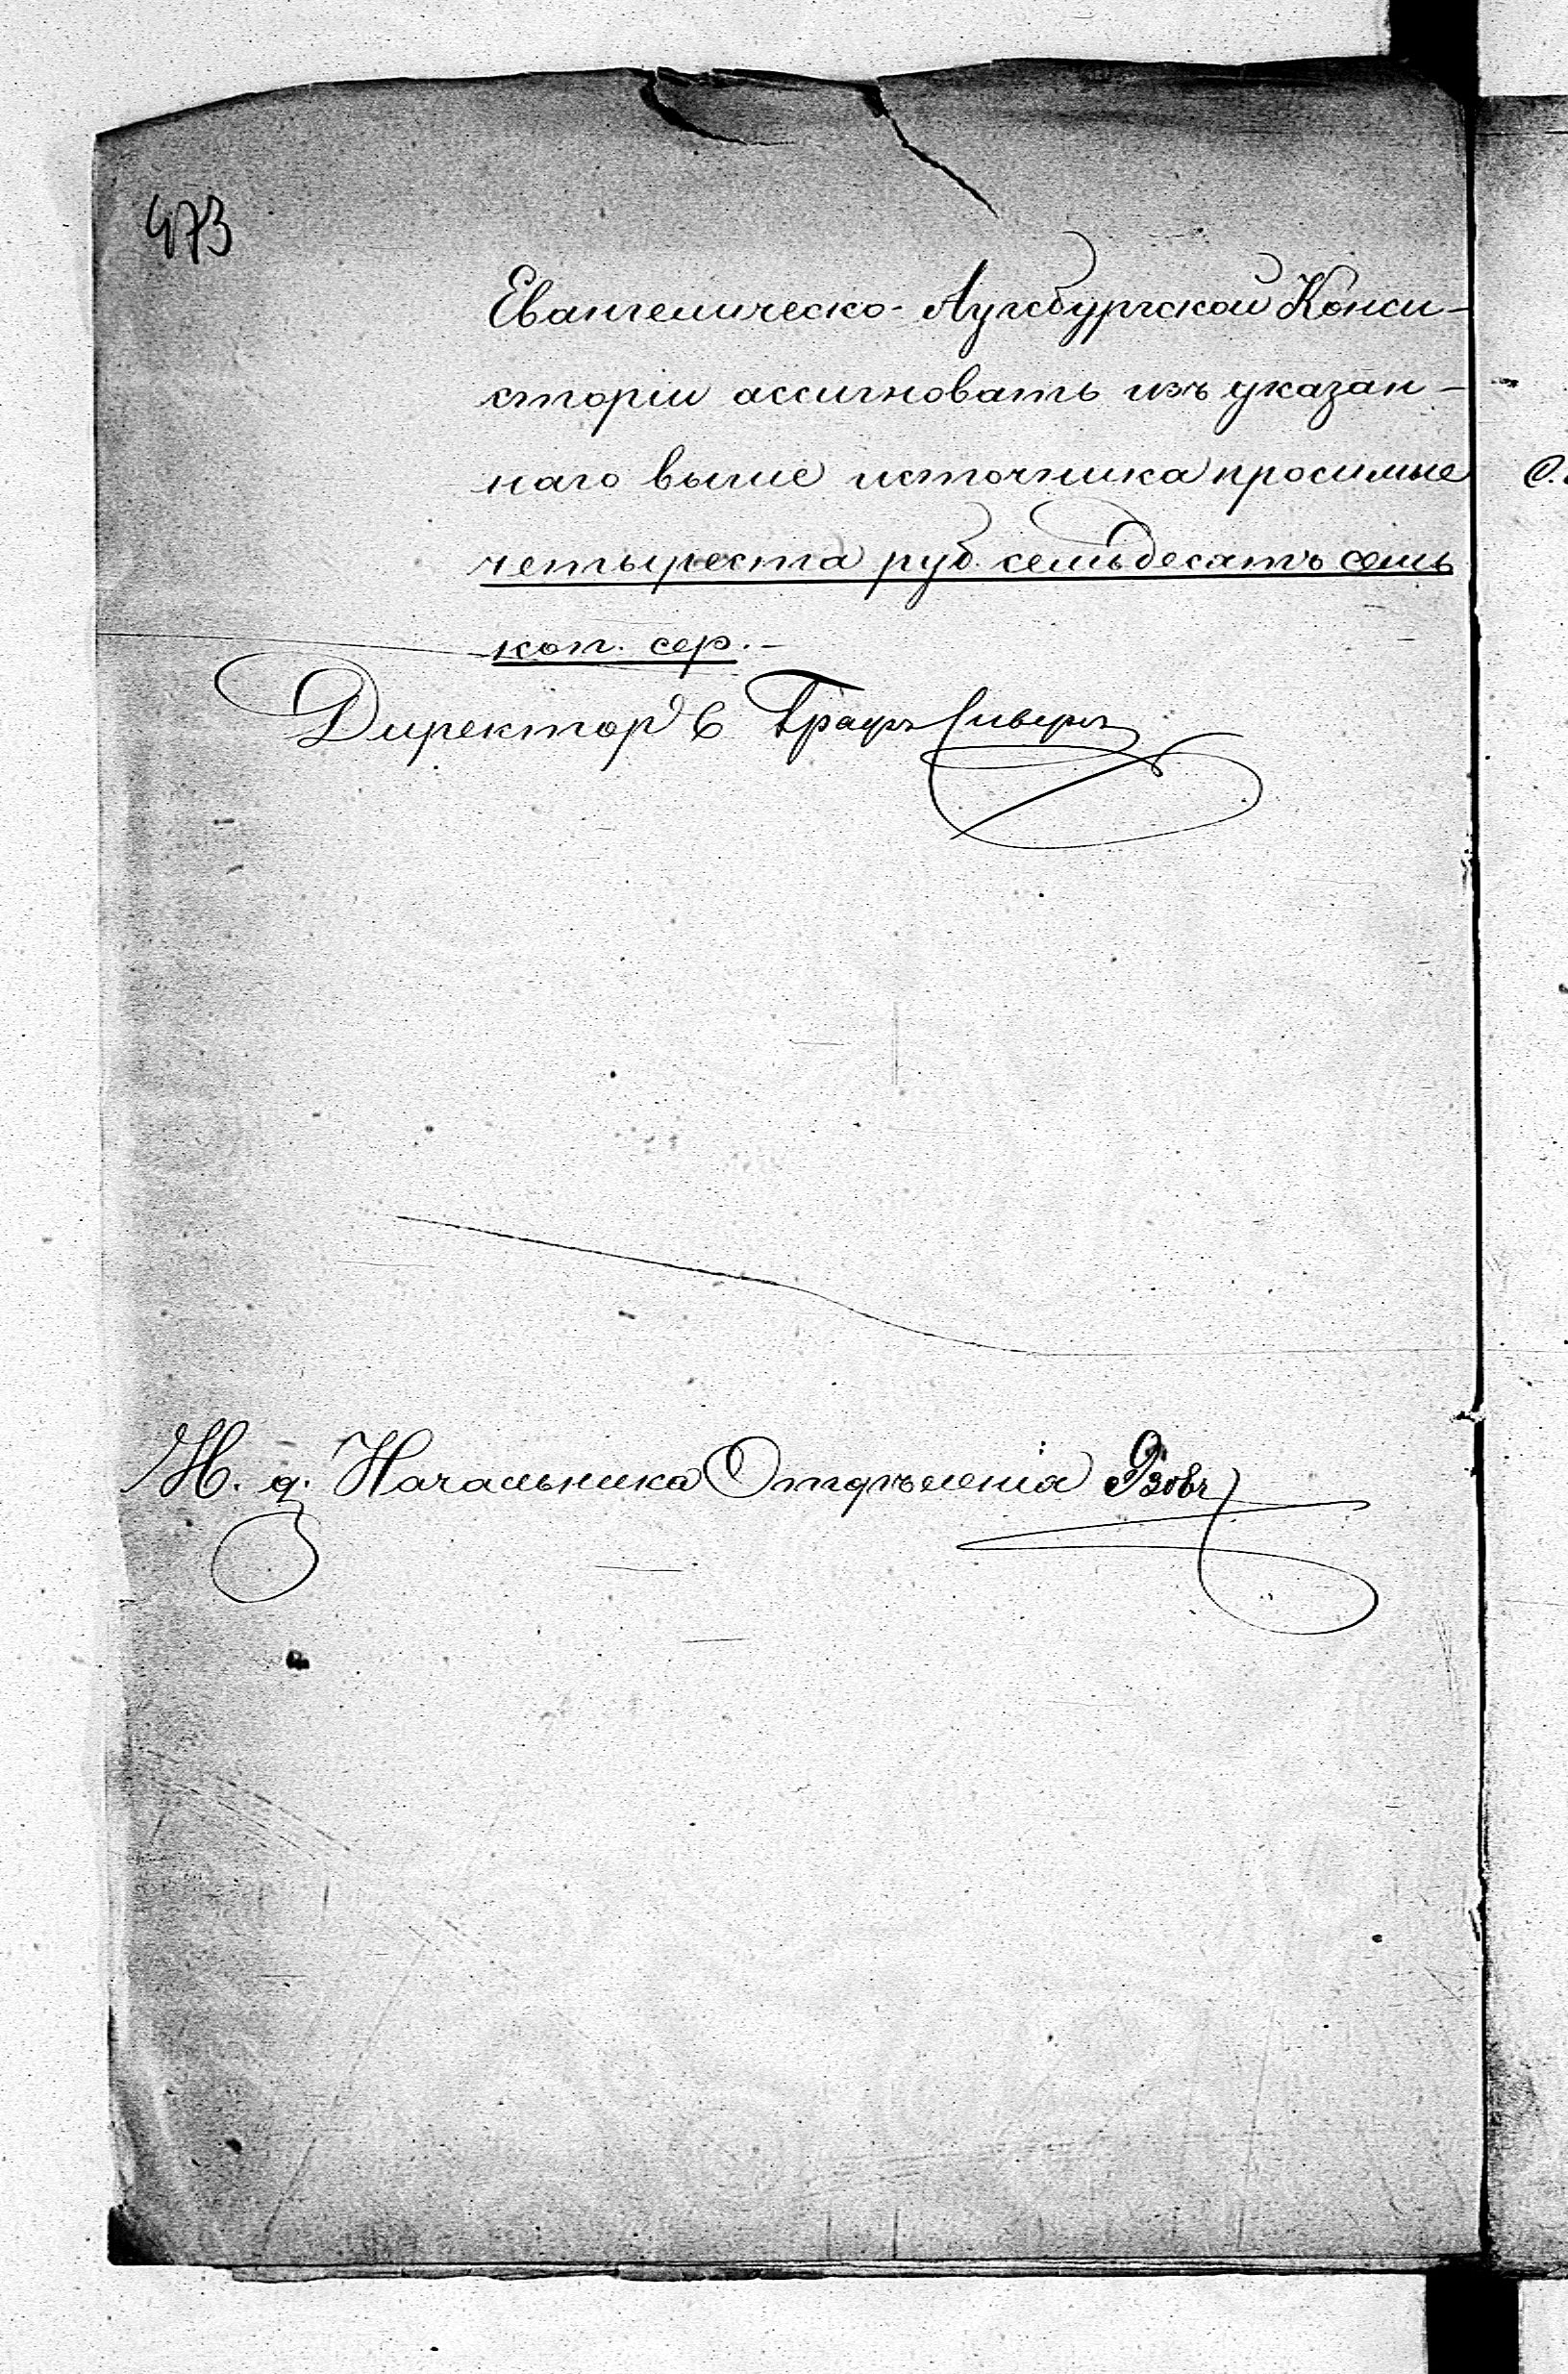 473
Евангелическо-Аугсбургской Конси-
сторіи ассигновать изъ указан-
наго выше источника просимые
четыреста руб. семьдесятъ семь
коп. сер.-
Директоръ Графъ Сиверсъ
И. д. Начальника Отдѣленія